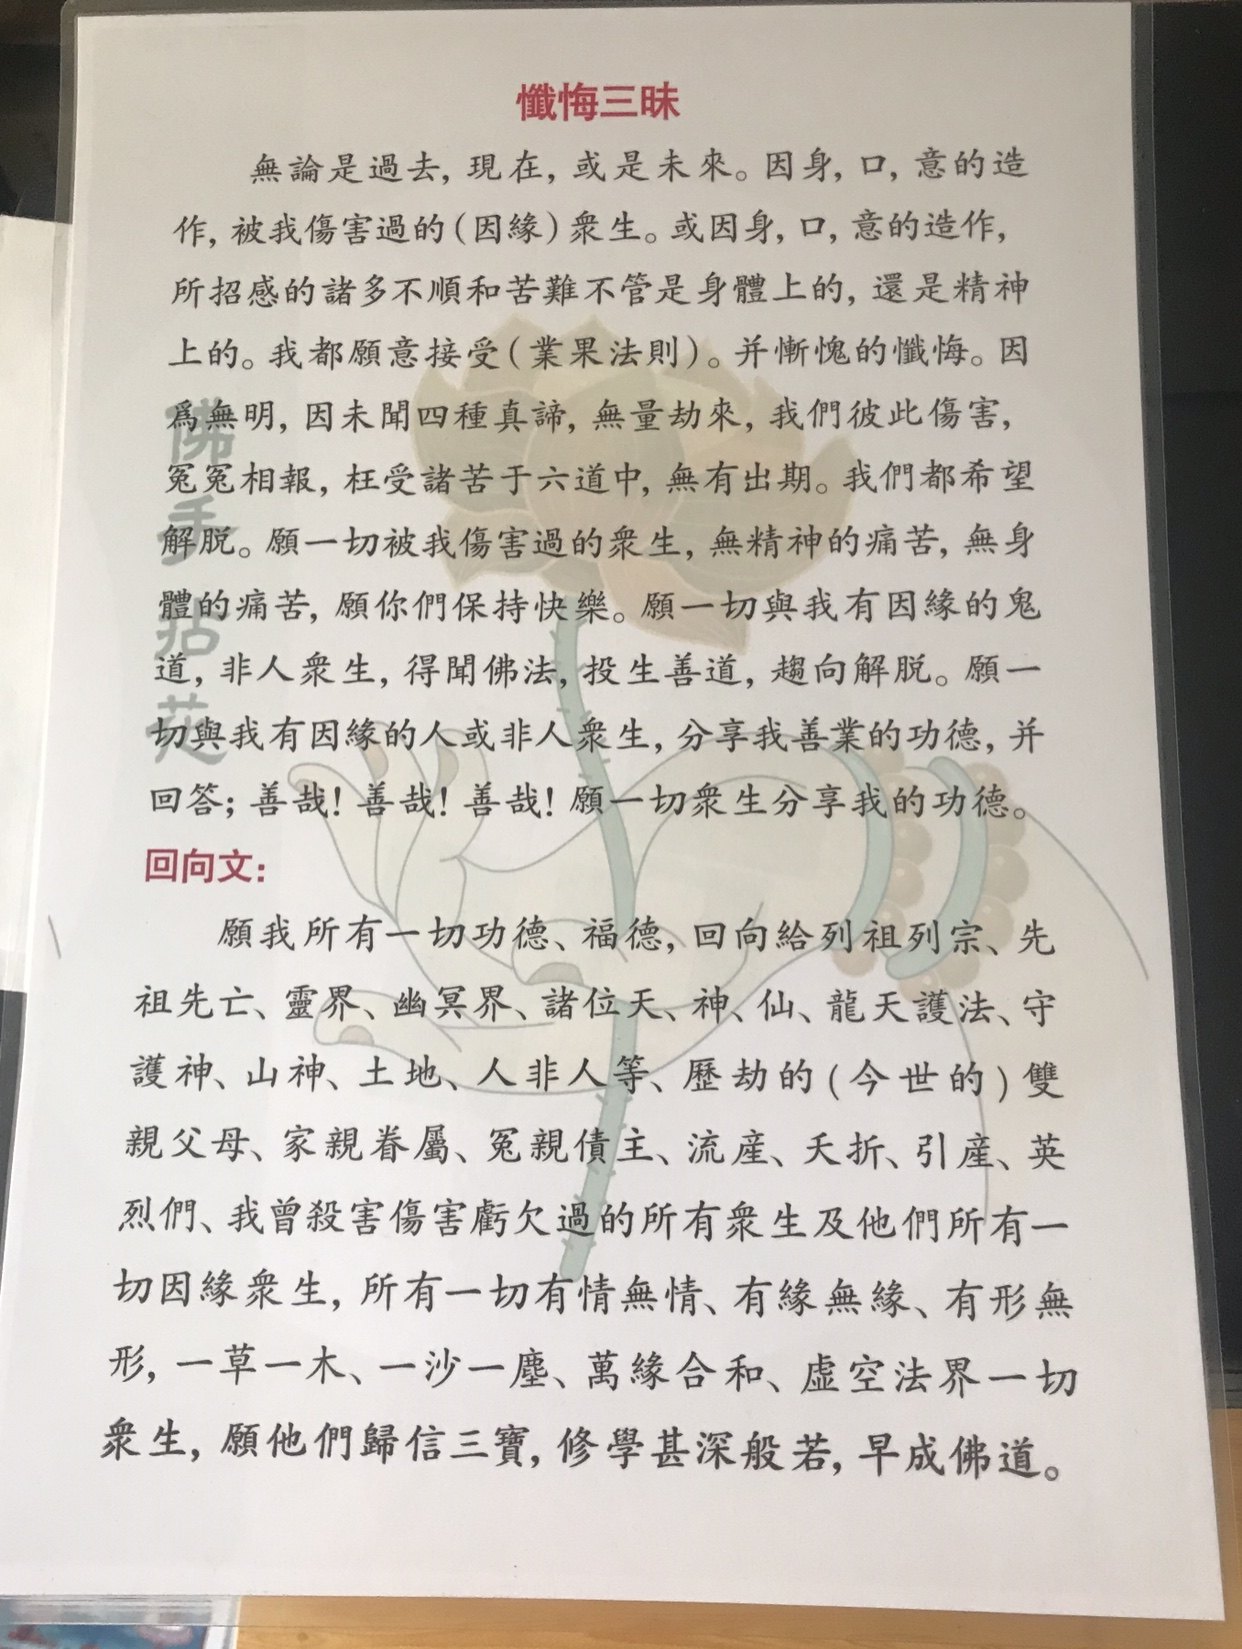 懺悔三昧
無論是過去, 現在, 或是未來。因身, 口, 意的造
作, 被我傷害過的(因緣)衆生。或因身, 口, 意的造作,
所招感的諸多不順和苦難不管是身體上的, 還是精神
上的。我都願意接受(業果法則)。并慚愧的懺悔。因
爲無明, 因未聞四種真諦, 無量劫來, 我們彼此傷害,
冤冤相報, 枉受諸苦于六道中, 無有出期。我們都希望
解脱。願一切被我傷害過的衆生, 無精神的痛苦, 無身
體的痛苦, 願你們保持快樂。願一切與我有因緣的鬼
道, 非人衆生, 得聞佛法, 投生善道, 趨向解脱。願一
切與我有因緣的人或非人衆生, 分享我善業的功德, 并
回答; 善哉! 善哉! 善哉! 願一切衆生分享我的功德。
回向文:
願我所有一切功德、福德, 回向給列祖列宗、先
祖先亡、靈界、幽冥界、諸位天、神、仙、龍天護法、守
護神、山神、土地、人非人等、歷劫的(今世的)雙
親父母、家親眷屬、冤親債主、流産、夭折、引産、英
烈們、我曾殺害傷害虧欠過的所有衆生及他們所有一
切因緣衆生, 所有一切有情無情、有緣無緣、有形無
形, 一草一木、一沙一塵、萬緣合和、虚空法界一切
衆生, 願他們歸信三寶, 修學甚深般若, 早成佛道。
佛手拈花